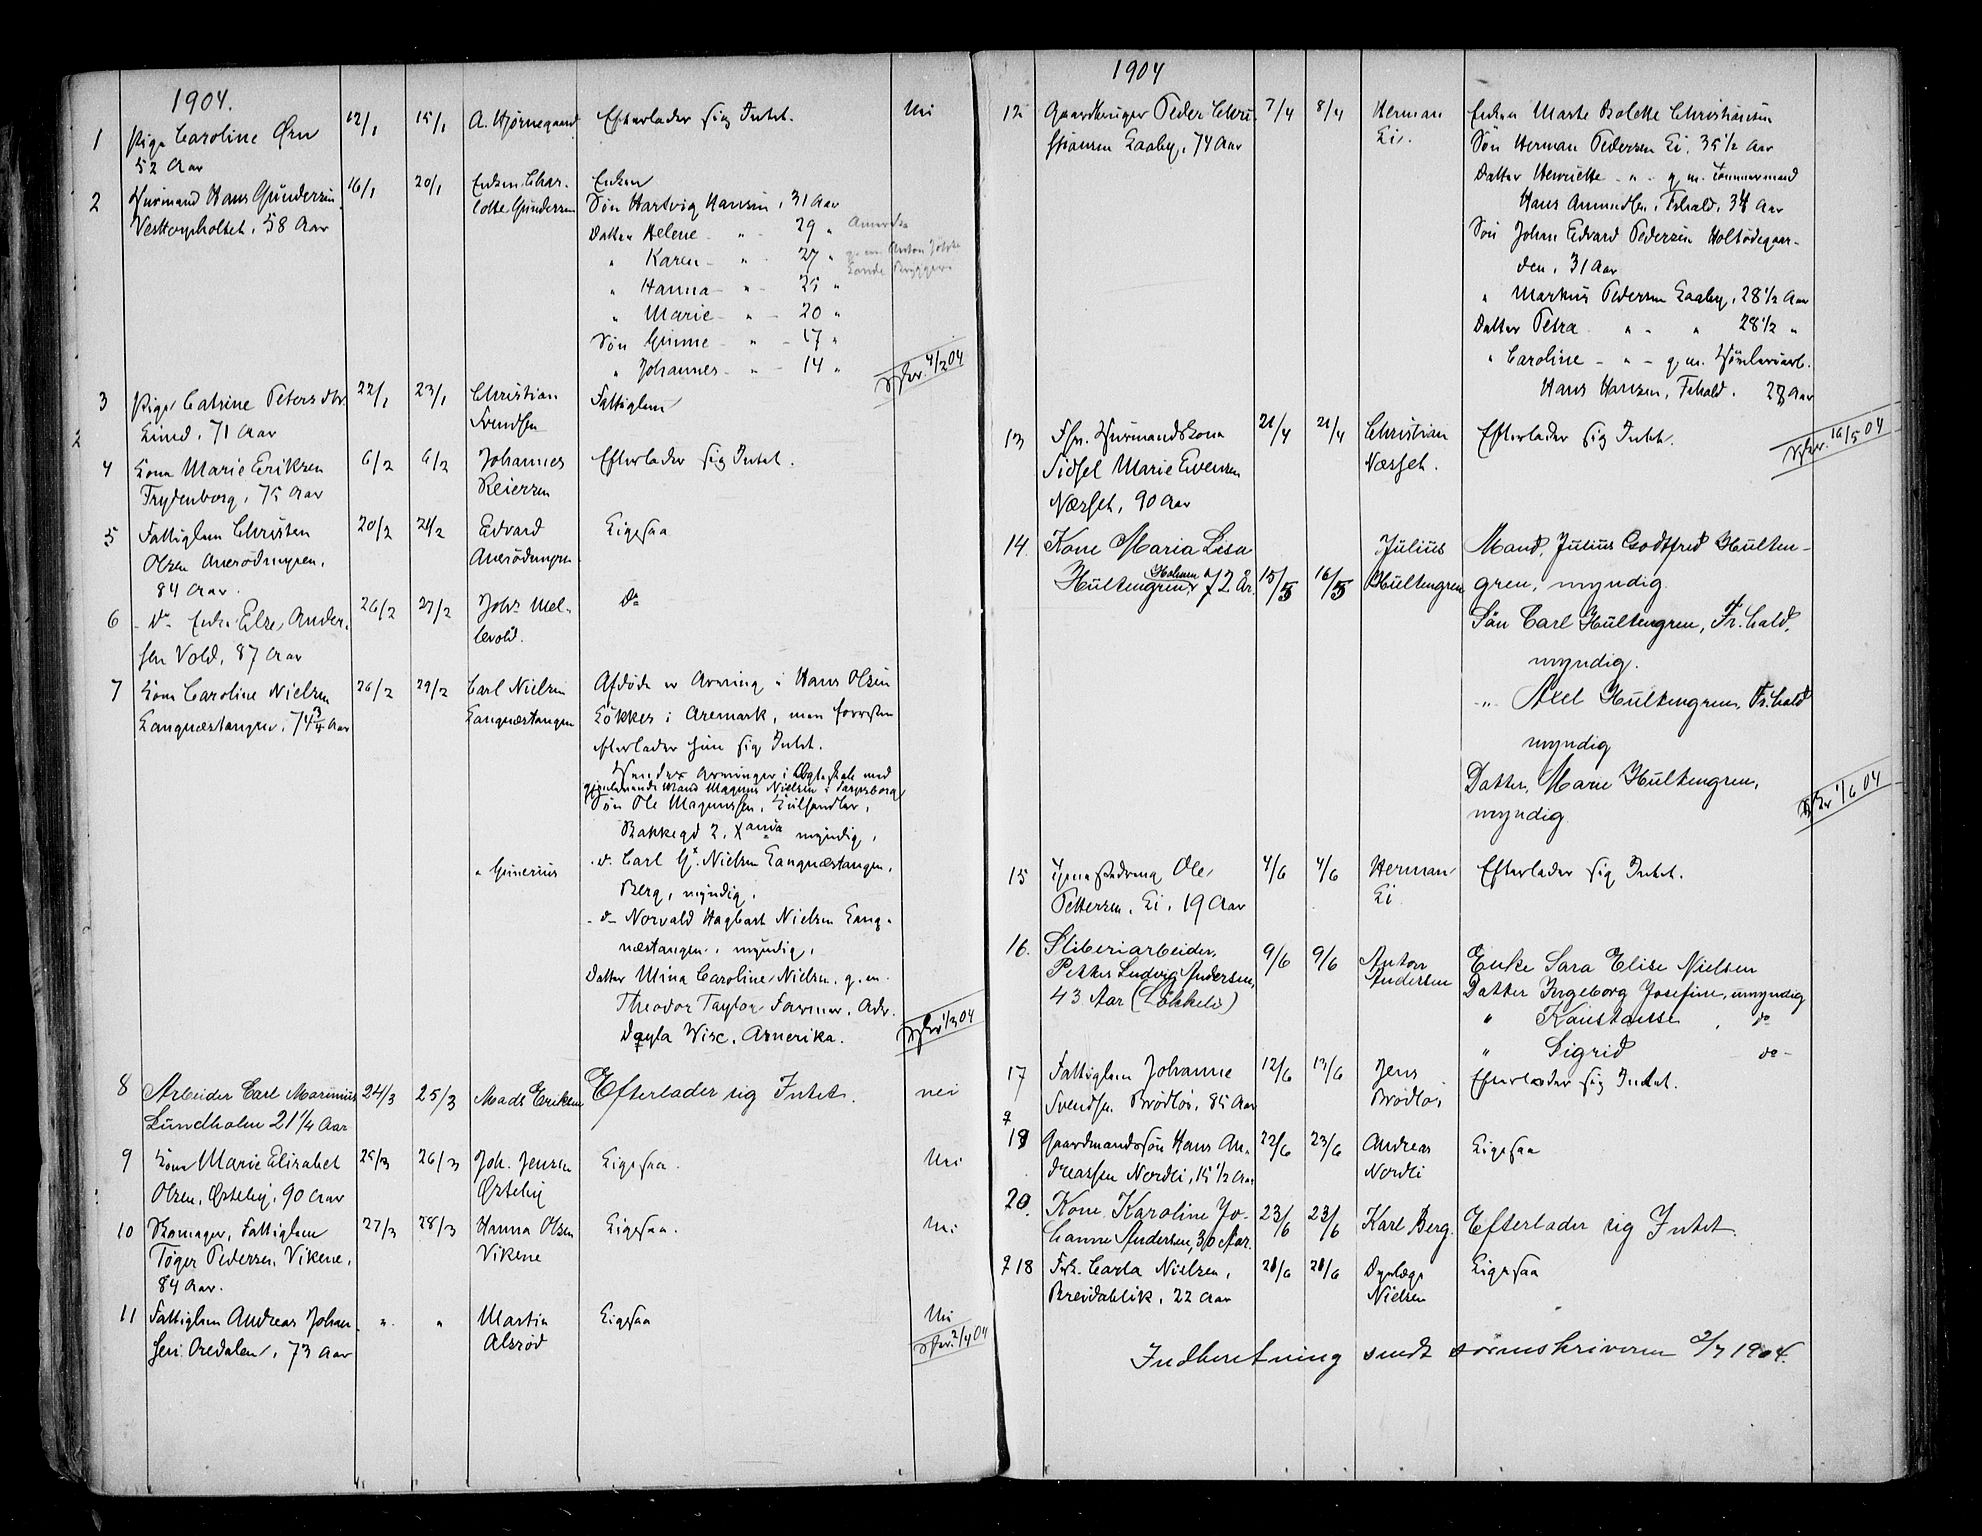 1904.
1 Pige Caroline Ørn 12/1 15/1 A. Hjørnegaard Efterlader sig Intet. Nei
52 Aar
2 Husmand Hans Gundersen 16/1 20/1 Enken Char- Enken
Vesttorpholtet, 58 Aar lotte Gundersen Søn Hartvig Hansen, 31 Aar
Datter Helene - " - 29 " Amerika
" Karen - " - 27 " g. m. Anton
" Hanna - " - 25 "
" Marie - " - 20 "
Søn Gunne - " - 17 "
" Johannes - " - 14 " 4/2 04
3 Pige Catrine Petersdtr 22/1 23/1 Christian Fattiglem
Lund, 71 Aar Svendsen
2
4 Kone Marie Eriksen 6/2 6/2 Johannes Efterlader sig Intet.
Frydenborg, 75 Aar Reiersen
5 Fattiglem Christen 20/2 21/2 Edvard Ligesaa
Olsen Anerødmyren, Anerødmyren
84 Aar.
6 - do - Enke Else Ander- 26/2 27/2 Johs Mel- do
sen Vold, 87 Aar levold.
7 Kone Caroline Nielsen 26/2 29/2 Carl Nielsen Afdøde er Arving i Hans Olsen
Langnæstangen, 74 3/4 Aar Langnæstangen Løkkes i Aremark, men forresten
efterlader hun sig Intet.
Hendes Arvinger i Ægteskab med
gjenlevende Mand Magnus Nielsen i Sarpsborg
Søn Ole Magnussen, Kulhandler,
Bakkegd 2, Xania myndig,
" Gunerius - do - Carl G. Nielsen Langnæstangen,
Berg, myndig,
- do - Norvald Hagbart Nielsen Lang-
næstangen, myndig,
Datter Mina Caroline Nielsen, g. m.
Theodor Taylor Farmer, Adr.
Wisc. Amerika. 1/3 04
8 Arbeider Carl Marinius 24/3 25/3 Mads Eriksen Efterlader sig Intet. nei
Lundholm 21 1/4 Aar
9 Kone Marie Elisabet 25/3 26/3 Joh. Jensen Ligesaa. Nei
Olsen, Østeby, 90 Aar Østeby
10 Skomager, Fattiglem 27/3 28/3 Hanna Olsen Ligesaa. Nei
Tøger Pedersen, Vikene, Vikene
84 Aar.
11 Fattiglem Andreas Johan- " " Martin Ligesaa Nei
sen Aredalen, 73 Aar Alsrød 2/4 04
1904
12 Gaardbruger Peder Chri- 7/4 8/4 Herman Enken Marte Bolette Christiansen
stiansen Laaby, 74 Aar Ei. Søn Herman Pedersen Ei, 35 1/2 Aar
Datter Henriette - " - g. m. Tømmermand
Hans Amundsen, Fr.hald, 34 Aar
Søn Johan Edvard Pedersen Holtødegaar-
den, 31 Aar
" Markus Pedersen Laaby, 28 1/2 Aar
Datter Petra " - " 28 1/2 "
" Caroline - " - g. m.
Hans Hansen, Fr.hald. 27 Aar
13 Fhv. Husmandskone 21/4 21/4 Christian Efterlader sig Intet. 16/5 04
Sidsel Marie Evensen Næsset.
Næsset, 90 Aar
14. Kone Maria Lisa Julius Mand, Julius Godtfred Hulten-
Hultengren, Holmen 72 År. 15/5 16/5 Hultengren gren, myndig
Søn Carl Hultengren, Fr.hald,
myndig.
- " - Axel Hultengren, Fr.hald
myndig
Datter, Marie Hultengren,
myndig 1/6 04
15 Ole 4/6 4/6 Herman Efterlader sig Intet.
Pettersen, Ei, 19 Aar Ei
16. Sliberiarbeider, 9/6 9/6 Anton Enke Sara Elise Nielsen
Petter Ludvig Andersen, Andersen Datter Ingeborg Josefine, umyndig
43 Aar (Løkkelis) " Konstanse, do
" Sigrid do -
17 Fattiglem Johanne 12/6 13/6 Jens Efterlader sig Intet.
Svendsen Brødløs, 85 Aar Brødløs
19 Gaardmandssøn Hans An- 22/6 23/6 Andreas Ligesaa
dreassen Nordli, 15 1/2 Aar Nordli
20. Kone Karoline Jo- 23/6 23/6 Karl Berg. Efterlader sig Intet
hanne Andersen, 30 Aar.
18 Frk. Carla Nielsen, 21/6 21/6 Dyrlæge Ligesaa
Breidablik, 22 Aar Nielsen
Indberetning sendt sorenskriveren 2/7 1904.